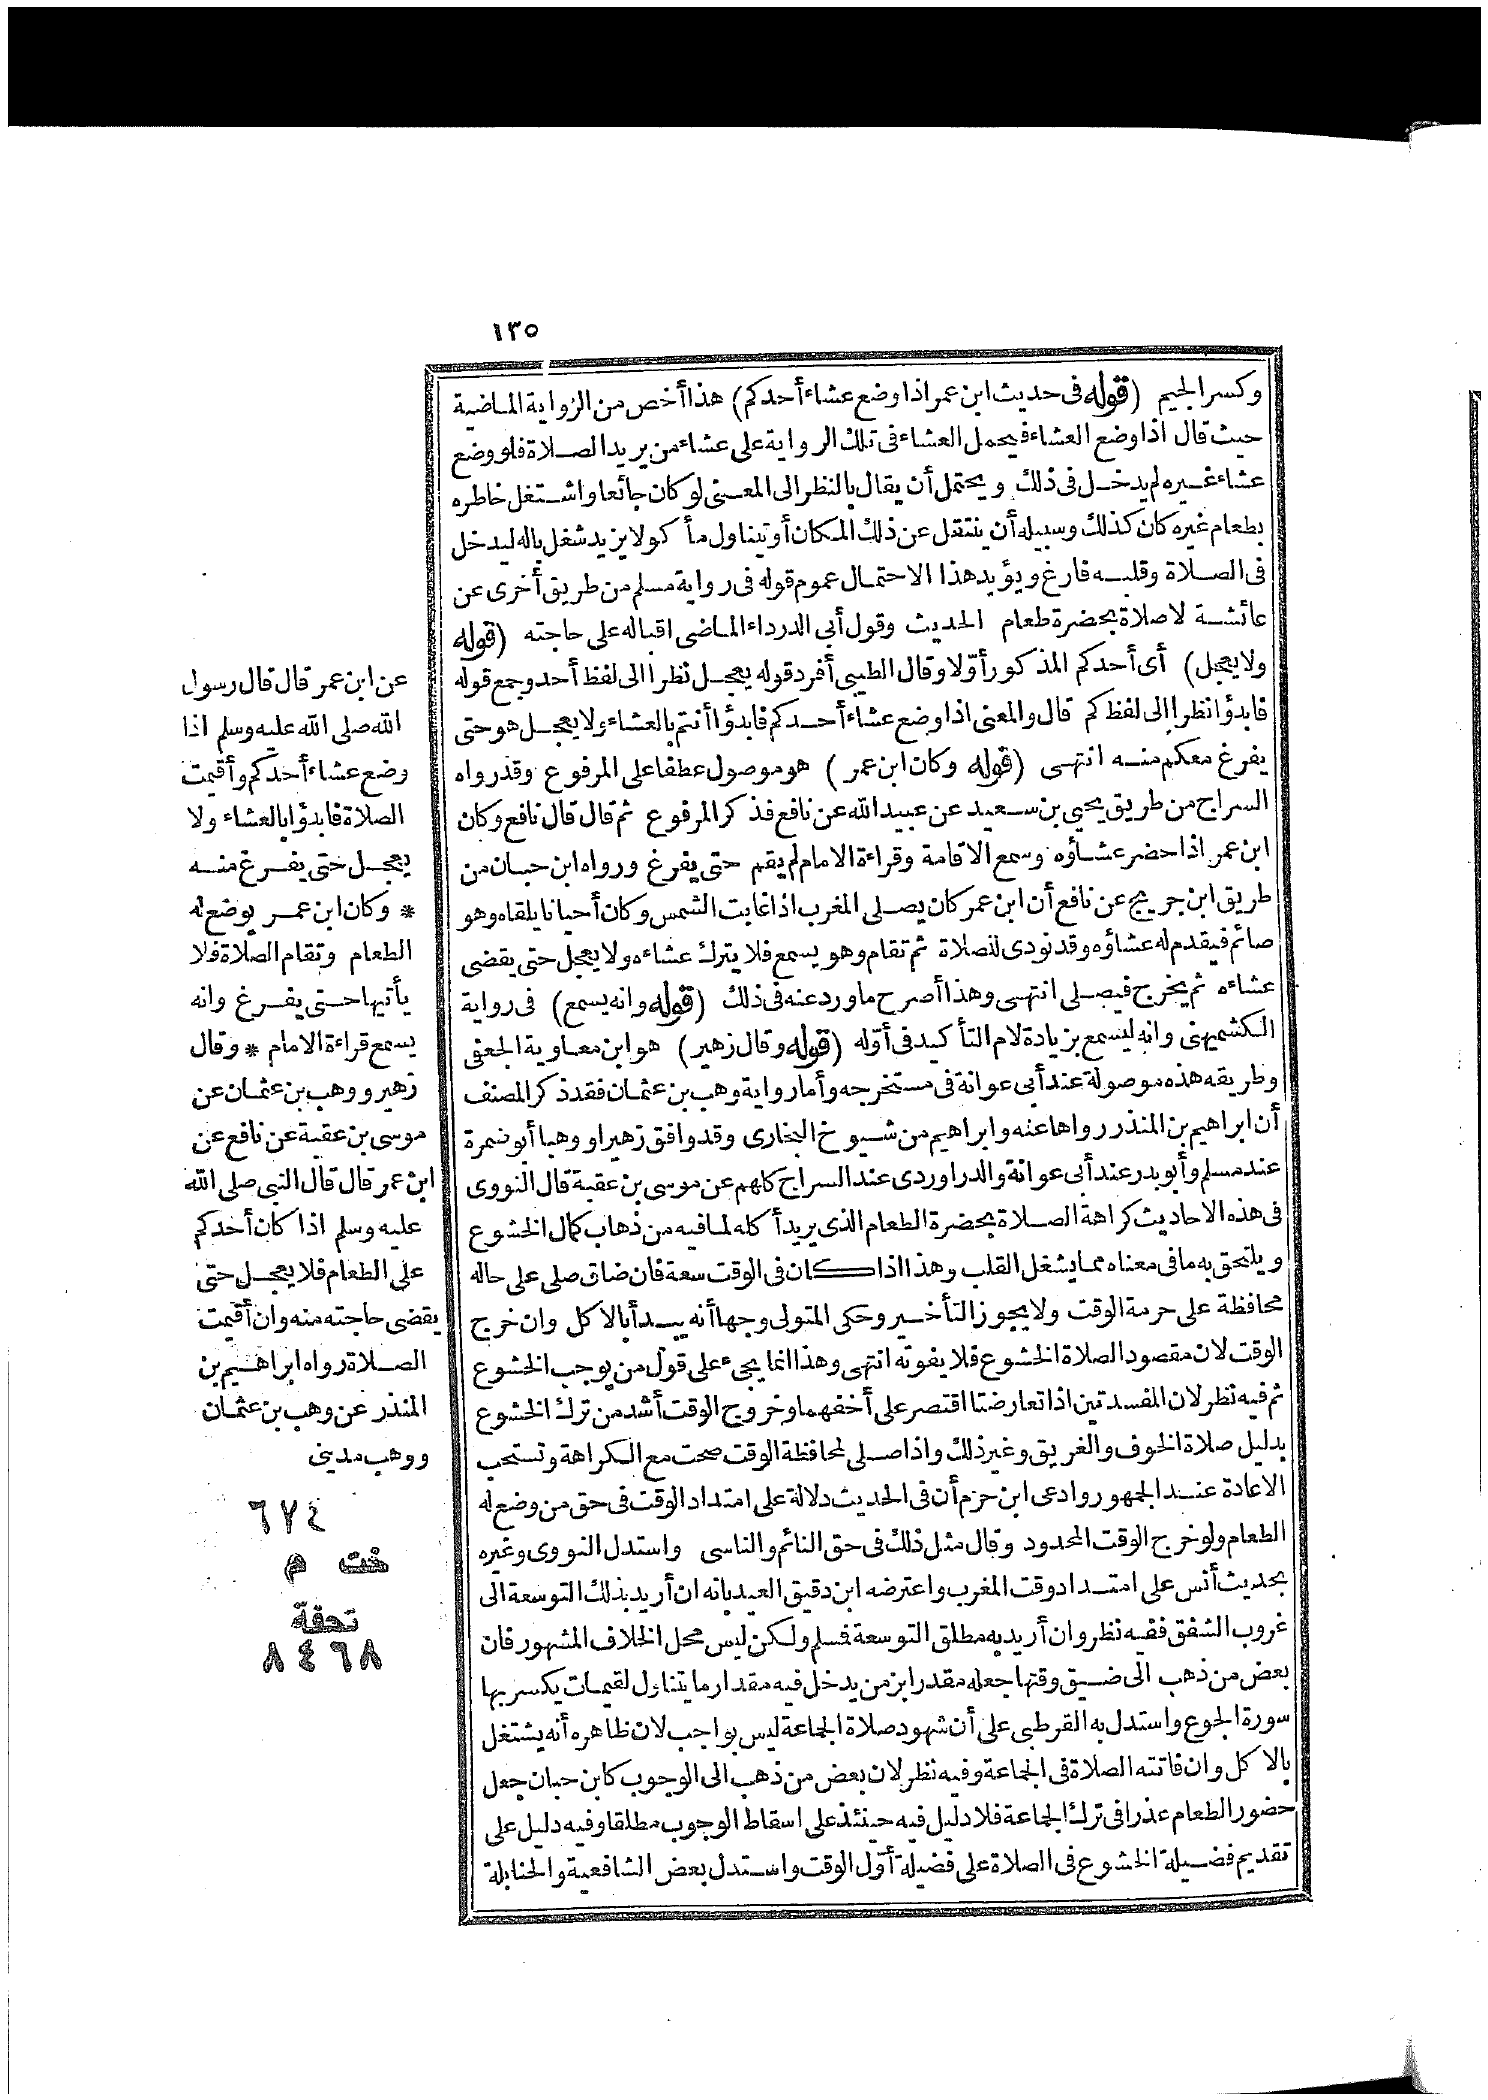 ١٣٥
وكسر الجيم (قوله فى حديث ابن عمر اذا وضع عشاء أحدكم) هذا أخص من الرواية الماضية
حيث قال اذا وضع العشاء فيحمل العشاء فى تلك الرواية على عشاء من يريد الصلاة فلو وضع
عشاء غيره لم يدخل فى ذلك ويحتمل أن يقال بالنظر الى المعنى لو كان جائعا واشتغل خاطره
بطعام غيره كان كذلك وسبيله أن ينتقل عن ذلك المكان أو يتناول مأكولا يزيد شغل باله ليدخل
فى الصلاة وقلبه فارغ ويؤيد هذا الاحتمال عموم قوله فى رواية مسلم من طريق أخرى عن
عائشة لا صلاة بحضرة طعام الحديث وقول أبى الدرداء الماضى اقباله على حاجته (قوله
ولا يعجل) أى أحدكم المذكور أوّلا وقال الطيبى أفرد قوله يعجل نظرا الى لفظ أحد وجمع قوله
فابدؤا نظرا الى لفظ كم قال والمعنى اذا وضع عشاء أحدكم فابدؤا أنتم بالعشاء ولا يعجل هو حتى
يفرغ معكم منه انتهى (قوله وكان ابن عمر) هو موصول عطفا على المرفوع وقد رواه
السراج من طريق يحيى بن سعيد عن عبيد الله عن نافع فذكر المرفوع ثم قال قال نافع وكان
ابن عمر اذا حضر عشاؤه وسمع الاقامة وقراءة الامام لم يقم حتى يفرغ ورواه ابن حبان من
طريق ابن جريج عن نافع أن ابن عمر كان يصلى المغرب اذا غابت الشمس وكان أحيانا يلقاه وهو
صائم فيقدم له عشاؤه وقد نودى للصلاة ثم تقام وهو يسمع فلا يترك عشاءه ولا يعجل حتى يقضى
عشاءه ثم يخرج فيصلى انتهى وهذا أصرح ما ورد عنه فى ذلك (قوله وانه يسمع) فى رواية
الكشميهنى وانه ليسمع بزيادة لام التأكيد فى أوّله (قوله وقال زهير) هو ابن معاوية الجعفى
وطريقه هذه موصولة عند أبى عوانة فى مستخرجه وأما رواية وهب بن عثمان فقد ذكر المصنف
أن ابراهيم بن المنذر رواها عنه وابراهيم من شيوخ البخارى وقد وافق زهيرا ووهبا أبو ضمرة
عند مسلم وأبو بدر عند أبى عوانة والدراوردى عند السراج كلهم عن موسى بن عقبة قال النووى
فى هذه الاحاديث كراهة الصلاة بحضرة الطعام الذى يريد أكله لما فيه من ذهاب كمال الخشوع
ويلتحق به ما فى معناه مما يشغل القلب وهذا اذا كان فى الوقت سعة فان ضاق صلى على حاله
محافظة على حرمة الوقت ولا يجوز التأخير وحكى المتولى وجها أنه يبدأ بالاكل وان خرج
الوقت لان مقصود الصلاة الخشوع فلا يفوته انتهى وهذا انما يجىء على قول من يوجب الخشوع
ثم فيه نظر لان المفسدتين اذا تعارضتا اقتصر على أخفهما وخروج الوقت أشد من ترك الخشوع
بدليل صلاة الخوف والغريق وغير ذلك واذا صلى لمحافظة الوقت صحت مع الكراهة وتستحب
الاعادة عند الجمهور وادعى ابن حزم أن فى الحديث دلالة على امتداد الوقت فى حق من وضع له
الطعام ولو خرج الوقت المحدود وقال مثل ذلك فى حق النائم والناسى واستدل النووى وغيره
بحديث أنس على امتداد وقت المغرب واعترضه ابن دقيق العيد بانه ان أريد بذلك التوسعة الى
غروب الشفق ففيه نظر وان أريد به مطلق التوسعة فمسلم ولكن ليس محل الخلاف المشهور فان
بعض من ذهب الى ضيق وقتها جعله مقدرا بزمن يدخل فيه مقدار ما يتناول لقيمات يكسر بها
سورة الجوع واستدل به القرطبى على أن شهود صلاة الجماعة ليس بواجب لان ظاهره أنه يشتغل
بالاكل وان فاتته الصلاة فى الجماعة وفيه نظر لان بعض من ذهب الى الوجوب كابن حبان جعل
حضور الطعام عذرا فى ترك الجماعة فلا دليل فيه حينئذ على اسقاط الوجوب مطلقا وفيه دليل على
تقديم فضيلة الخشوع فى الصلاة على فضيلة أوّل الوقت واستدل بعض الشافعية والحنابلة
عن ابن عمر قال قال رسول
الله صلى الله عليه وسلم اذا
وضع عشاء أحدكم وأقيمت
الصلاة فابدؤا بالعشاء ولا
يعجل حتى يفرغ منه
* وكان ابن عمر يوضع له
الطعام وتقام الصلاة فلا
يأتيها حتى يفرغ وانه
يسمع قراءة الامام * وقال
زهير ووهب بن عثمان عن
موسى بن عقبة عن نافع عن
ابن عمر قال قال النبى صلى الله
عليه وسلم اذا كان أحدكم
على الطعام فلا يعجل حتى
يقضى حاجته منه وان أقيمت
الصلاة رواه ابراهيم بن
المنذر عن وهب بن عثمان
ووهب مدينى
٦٧٤
خت م
تحفة
٨٤٦٨